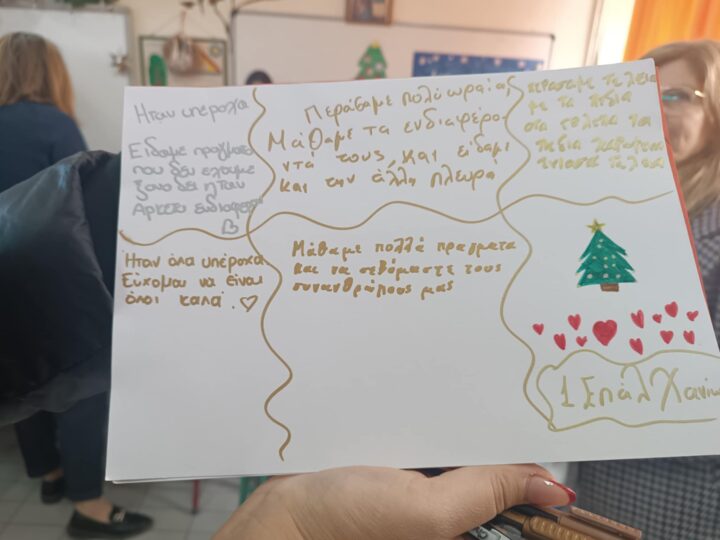 Ηταν υπέροχα
Είδαμε πράγματα
που δεν είχαμε
ξανα δει ηταν
Αρκετα ενδιαφερ
Περάσαμε πολύ ωραία
Μάθαμε τα ενδιαφέρο-
ντά τους, και είδαμε
και την άλλη πλευρά
περασαμε τελεια
με τα πεδια
στο τα
πεδια
τελεια
Ηταν όλα υπέροχα
Εύχομαι να είναι
όλοι καλά.
Μάθαμε πολλά πραγματα
και να σεβόμαστε τους
συνανθρώπους μας
1 Επάλ Χανίω